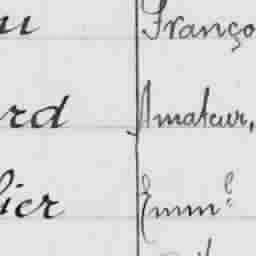 u Franço
rd Amateur,
lier Emm.l